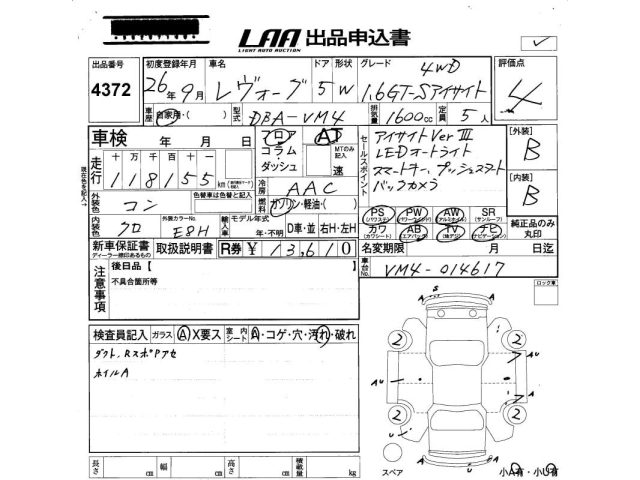 LAA 出品申込書
LIGHT AUTO AUCTION
出品番号 初度登録年月 車名 ドア 形状 グレード 評価点
4372 26年9月 レヴォーグ 5 W 4WD 1.6GT-Sアイサイト 4
車歴 自家用・( ) 型式 DBA-VM4 排気量 1600cc 定員 5人
車検 年 月 日
フロア コラム・ダッシュ AT
MTのみ記入 速
走行 十万千百十
118155 km
セールスポイント
アイサイトVer Ⅲ
LEDオートライト
スマートキー、プッシュスタート
バックカメラ
[外装] B
[内装] B
冷房 AAC
燃料 ガソリン・軽油・( )
外装色 コン 色替車は色替と記入
内装色 クロ 外装カラーNo. E8H
輸入車 モデル年式 年・不明 D車・並 右H・左H
PS PW AW SR
(パワステ) (パワーウインド) (アルミホイル) (サンルーフ)
カワ AB TV ナビ
(カワシート) (エアバック) (地デジ) (ナビゲーション)
純正品のみ丸印
新車保証書 取扱説明書 R券 ¥13,610
ディーラー捺印あるもの
名変期限 月 日迄
車台No. VM4-014617
注意事項
後日品【 】
不具合箇所等
ロック車
検査員記入 ガラス A X要ス 室内シート A・コゲ・穴・汚れ・破れ
ダクト、RスポPアセ
ホイルA
S
A A
2 2
A U
AU A
2 2
U
A U
スペア
小A有・小U有
長さ cm 幅 cm 高さ cm 積載量 kg